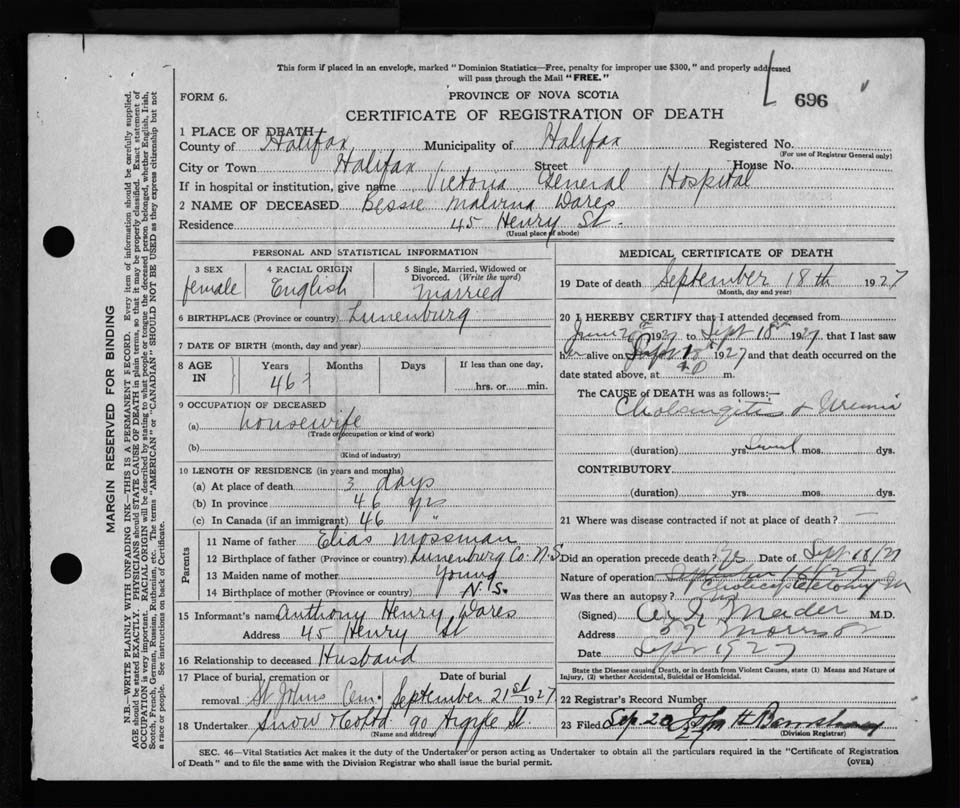 This form if placed in an envelope, marked "Dominion Statistics—Free, penalty for improper use $300," and properly addressed
will pass through the Mail "FREE."
FORM 6.
PROVINCE OF NOVA SCOTIA
696
CERTIFICATE OF REGISTRATION OF DEATH
1 PLACE OF DEATH
County of Halifax Municipality of Halifax Registered No.
(For use of Registrar General only)
City or Town Halifax Street House No.
If in hospital or institution, give name Victoria General Hospital
2 NAME OF DECEASED Bessie Malvina Wares
Residence 45 Henry St.
(Usual place of abode)
PERSONAL AND STATISTICAL INFORMATION
3 SEX 4 RACIAL ORIGIN 5 Single, Married, Widowed or
Divorced. (Write the word)
female English Married
6 BIRTHPLACE (Province or country) Lunenburg
7 DATE OF BIRTH (month, day and year)
8 AGE IN Years Months Days If less than one day,
46? hrs. or min.
9 OCCUPATION OF DECEASED
(a) housewife
(Trade or occupation or kind of work)
(b)
(Kind of industry)
10 LENGTH OF RESIDENCE (in years and months)
(a) At place of death 3 days
(b) In province 46 yrs
(c) In Canada (if an immigrant) 46 "
Parents
11 Name of father Elias Mossman
12 Birthplace of father (Province or country) Lunenburg Co. N.S.
13 Maiden name of mother Young
14 Birthplace of mother (Province or country) N.S.
15 Informant's name Anthony Henry Wares
Address 45 Henry St
16 Relationship to deceased Husband
17 Place of burial, cremation or Date of burial
removal St Johns Cem. September 21st 1927
18 Undertaker Snow & Co Ltd 90 Argyle St
(Name and address)
MEDICAL CERTIFICATE OF DEATH
19 Date of death September 18th 1927
(Month, day and year)
20 I HEREBY CERTIFY that I attended deceased from
June 1927 to Sept 18th 1927, that I last saw
her alive on Sept 18th 1927 and that death occurred on the
date stated above, at m.
The CAUSE OF DEATH was as follows:—
Cholangitis & Uremia
(duration) yrs. mos. dys.
CONTRIBUTORY
(duration) yrs. mos. dys.
21 Where was disease contracted if not at place of death? —
Did an operation precede death? Yes Date of Sept 18/27
Nature of operation
Was there an autopsy?
(Signed) Mader M.D.
Address 57 Morris St
Date Sept 1927
State the Disease causing Death, or in death from Violent Causes, state (1) Means and Nature of
Injury, (2) whether Accidental, Suicidal or Homicidal.
22 Registrar's Record Number
23 Filed Sep 20 27 John H Barnstead
(Division Registrar)
SEC. 46—Vital Statistics Act makes it the duty of the Undertaker or person acting as Undertaker to obtain all the particulars required in the "Certificate of Registration
of Death" and to file the same with the Division Registrar who shall issue the burial permit. (OVER)
MARGIN RESERVED FOR BINDING
N.B.—WRITE PLAINLY WITH UNFADING INK—THIS IS A PERMANENT RECORD. Every item of information should be carefully supplied.
AGE should be stated EXACTLY. PHYSICIANS should STATE CAUSE OF DEATH in plain terms, so that it may be properly classified. Exact statement of
OCCUPATION is very important. RACIAL ORIGIN will be described by stating to what people or tongue the deceased person belonged, whether English, Irish,
Scotch, French, German, Russian, Ruthenian, etc. The terms "AMERICAN" or "CANADIAN" SHOULD NOT BE USED as they express citizenship but not
a race or people. See instructions on back of Certificate.